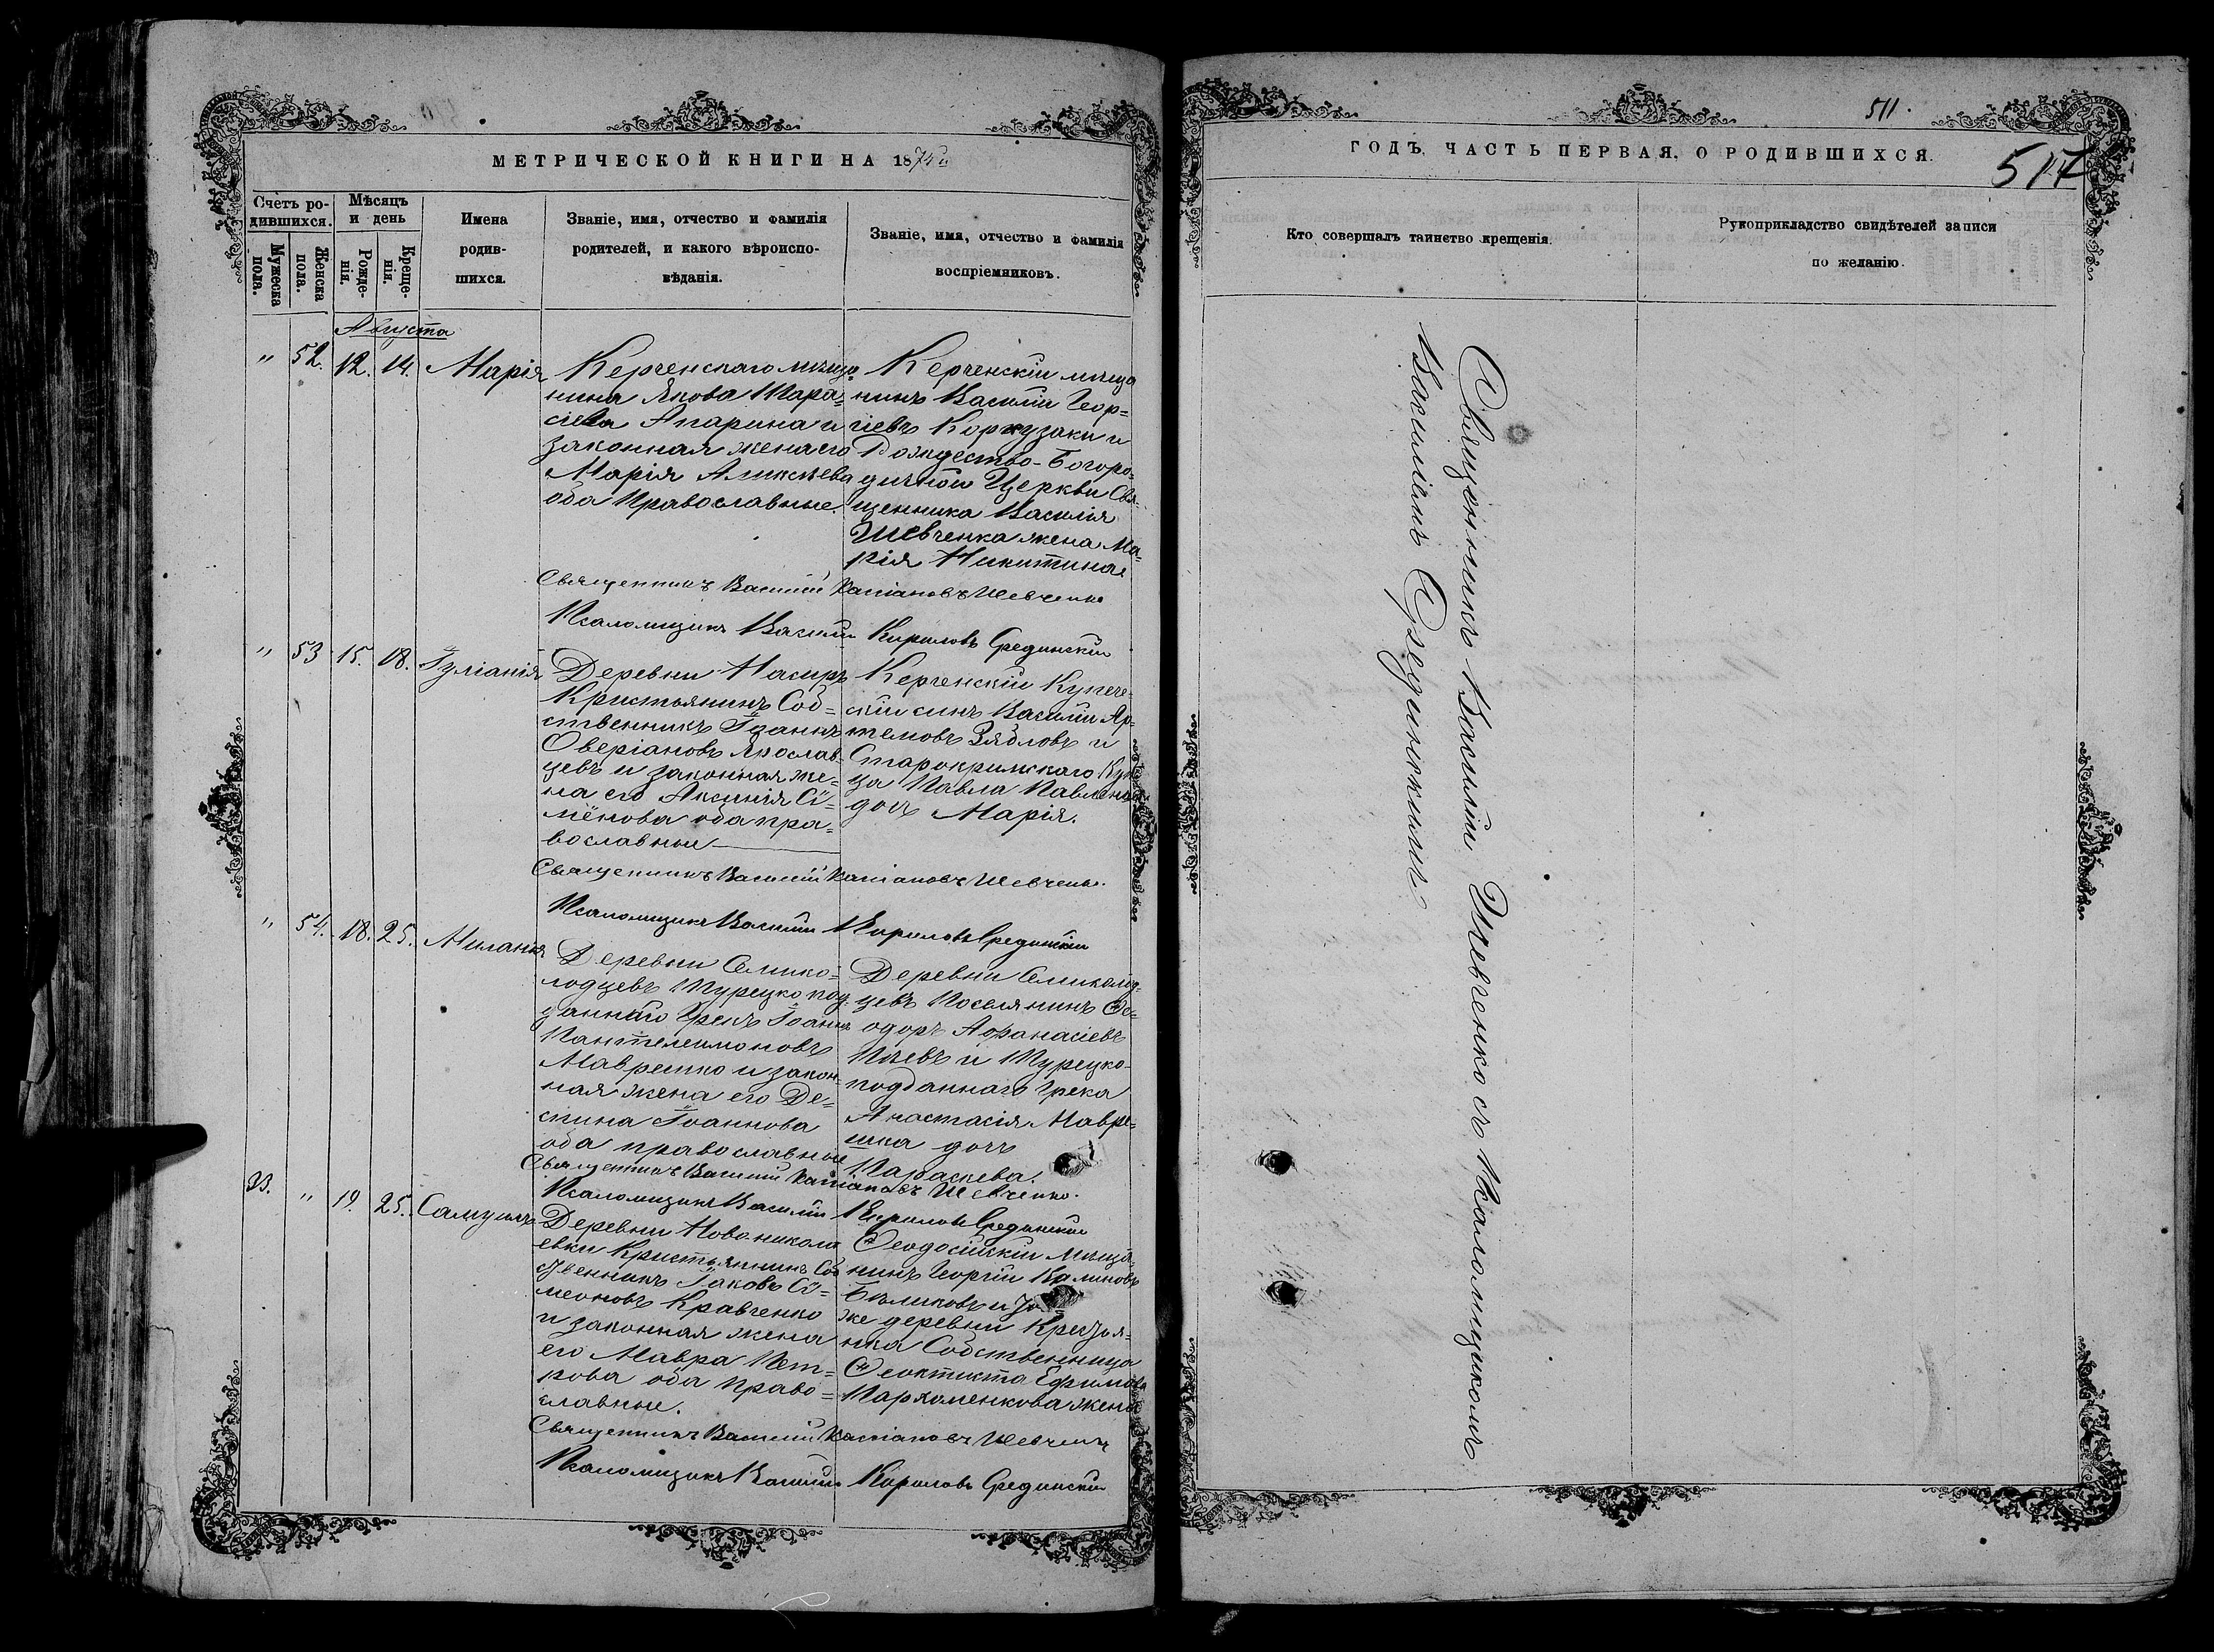 МЕТРИЧЕСКОЙ КНИГИ НА 1874
Счетъ ро-
дившихся.
Мужеска пола.
Женска пола.
Мѣсяцъ
и день
Рожде-
нія.
Креще-
нія.
Имена
родив-
шихся.
Званіе, имя, отчество и фамилія
родителей, и какого вѣроиспо-
вѣданія.
Званіе, имя, отчество и фамилія
воспріемниковъ.
Августа
" 52. 12. 14. Марія
Керченскаго мѣща-
нина Якова Тара-
сіева Апарина и
законная жена его
Марія Алексѣева
оба Православные.
Керченскій мѣща
нинъ Василій Геор=
гіевъ Коркузаки и
Рождество-Богоро-
дичной Церкви Свя-
щенника Василія
Шевченка жена Ма-
рія Никитина
Священникъ Василій Касіановъ Шевченко
Псаломщикъ Василій Кириловъ Срединскій
" 53 15. 18. Іуліанія
Деревни Насыръ
Кристьянинъ Соб=
ственникъ Іоаннъ
Оверіановъ Ярослав-
цевъ и законная же=
на его Аксинія Сі-
мёнова оба пра=
вославные
Керченскій Купече-
скій сынъ Василій Ар=
темовъ Зябловъ и
Старокрымскаго Куп
ца Павла Павленка
дочь Марія.
Священникъ Василій Касіановъ Шевченко.
Псаломщикъ Василій Кириловъ Срединскій
" 54. 18. 25. Миланія
Деревни Семико=
лодцевъ Турецко под-
даннаго Грекъ Іоаннъ
Пантелеимоновъ
Маврешко и закон-
ная жена его Де=
спина Іоаннова
оба православные
Деревни Семиколод-
цевъ Поселянинъ Ѳе-
одоръ Афанасіевъ
и Турецко-
подданнаго Грека
Анастасія Мавре-
шка дочь
Параскева.
Священникъ Василій Касіановъ Шевченко.
Псаломщикъ Василій Кириловъ Срединскій
33. " 19. 25. Самуилъ
Деревни Новоникола
евки Кристьянинъ Соб
ственникъ Іаковъ Сі=
меоновъ Кравченко
и законная жена
его Мавра Пет=
рова оба право=
славные.
Ѳеодосійскій Мѣща-
нинъ Георгій Калиновъ
Бѣликовъ и
же деревни Крестья=
нка Собственница
Ѳеоктиста Ефимова
Пархоменкова жена
Священникъ Василій Касіановъ Шевченко
Псаломщикъ Василій Кириловъ Срединскій
511.
ГОДЪ, ЧАСТЬ ПЕРВАЯ, О РОДИВШИХСЯ.
517
Кто совершалъ таинство крещенія.
Рукоприкладство свидѣтелей записи
по желанію.
Священникъ Василій Шевченко съ Псаломщикомъ
Василіемъ Срединскимъ